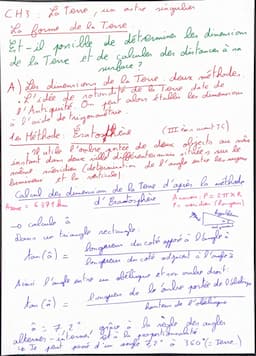 CH3 : La Terre, un astre singulier
La forme de la Terre
Et-il possible de déterminer les dimensions
de la Terre et de calculer des distances à sa
surface ?
A) Les dimensions de la Terre : deux méthodes.
L'idée de rotondité de la Terre date de
l'Antiquité. On peut alors établir les dimensions
à l'aide de trigonométrie
1ère Méthode : Eratosthène (III ème avant JC)
Il utilise l'ombre portée de deux objets au même
instant dans deux villes différentes mais situées sur le
même méridien (détermination de l'angle entre les rayons
lumineux et la verticale)
Calcul des dimensions de la Terre d'après la méthode
d'Eratosthène
→ calcule â
Dans un triangle rectangle :
tan(â) = longueur du côté opposé à l'angle â
longueur du côté adjacent à l'angle â
Ainsi l'angle entre un obélisque et son ombre donne :
tan(â) = longueur de l'ombre portée de l'obélisque
hauteur de l'obélisque
â = 7,2° grâce à la règle des angles
alternes-internes et à la proportionnalité
Je peut avoir d'un angle 7,2° à 360° (= Terre)